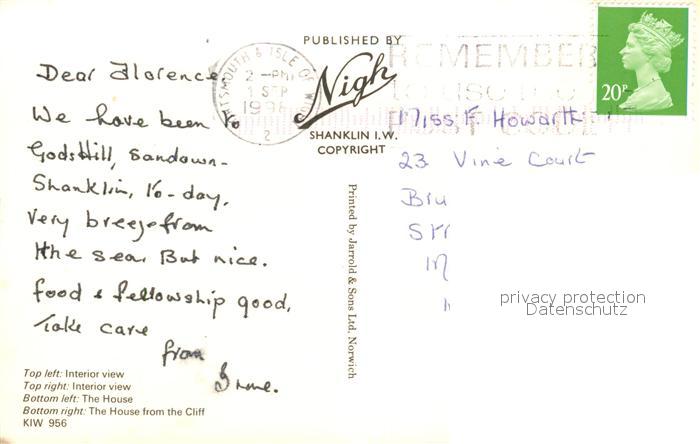 PUBLISHED BY
Nigh
SHANKLIN I.W.
COPYRIGHT
PORTSMOUTH & ISLE OF WIGHT
2 - PM
1 SEP
199
2
REMEMBER
TO USE THE
POST CODE
20P
Dear Florence
We have been to
Gods Hill, Sandown-
Shanklin, to-day,
Very breeze from
the sea. But nice.
food & fellowship good,
Take care
from
Irene.
Miss F. Howarth
23 Vine Court
Bru
Str
Printed by Jarrold & Sons Ltd. Norwich
privacy protection
Datenschutz
Top left: Interior view
Top right: Interior view
Bottom left: The House
Bottom right: The House from the Cliff
KIW 956